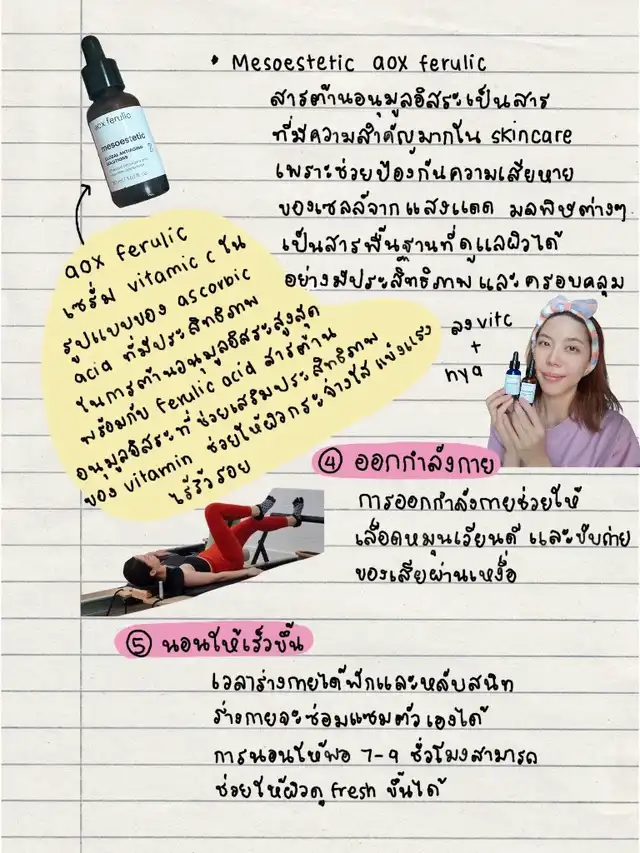 • Mesoestetic aox ferulic
สารต้านอนุมูลอิสระเป็นสาร
ที่มีความสำคัญมากใน skincare
เพราะช่วยป้องกันความเสียหาย
ของเซลล์จากแสงแดด มลพิษต่างๆ
เป็นสารพื้นฐานที่ดูแลผิวได้
อย่างมีประสิทธิภาพและครอบคลุม
aox ferulic
mesoestetic
aox ferulic
เซรั่ม vitamic c ใน
รูปแบบของ ascorbic
acid ที่มีประสิทธิภาพ
ในการต้านอนุมูลอิสระสูงสุด
พร้อมกับ ferulic acid สารต้าน
อนุมูลอิสระที่ช่วยเสริมประสิทธิภาพ
ของ vitamin ช่วยให้ผิวกระจ่างใส แข็งแรง
ไร้ริ้วรอย
ลง vitc
+
hya
④ ออกกำลังกาย
การออกกำลังกายช่วยให้
เลือดหมุนเวียนดี และขับถ่าย
ของเสียผ่านเหงื่อ
⑤ นอนให้เร็วขึ้น
เวลาร่างกายได้พักและหลับสนิท
ร่างกายจะซ่อมแซมตัวเองได้
การนอนให้พอ 7-9 ชั่วโมงสามารถ
ช่วยให้ผิวดู fresh ขึ้นได้